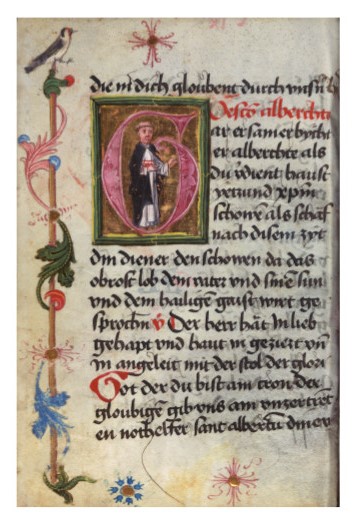 die in dich gloubent durch vnsñ h
De scõ alberchto
ar ersamer bycht
er alberchte als
du dient haust
yetzund xpm̃
schowe als schaf
nach disem zyt
din diener den schowen da das
obrost lob dem vater vnd sinẽ sun
vnd dem hailige gaist wirt ge
sprochñ v Der herr hăt in lieb
gehapt vnd haut in geziert vñ
in angeleit mit der stol der glori
Got der du bist ain tron der
gloubigẽ gib vns ain vnzertret
en nothelfer sant albertũ dinen